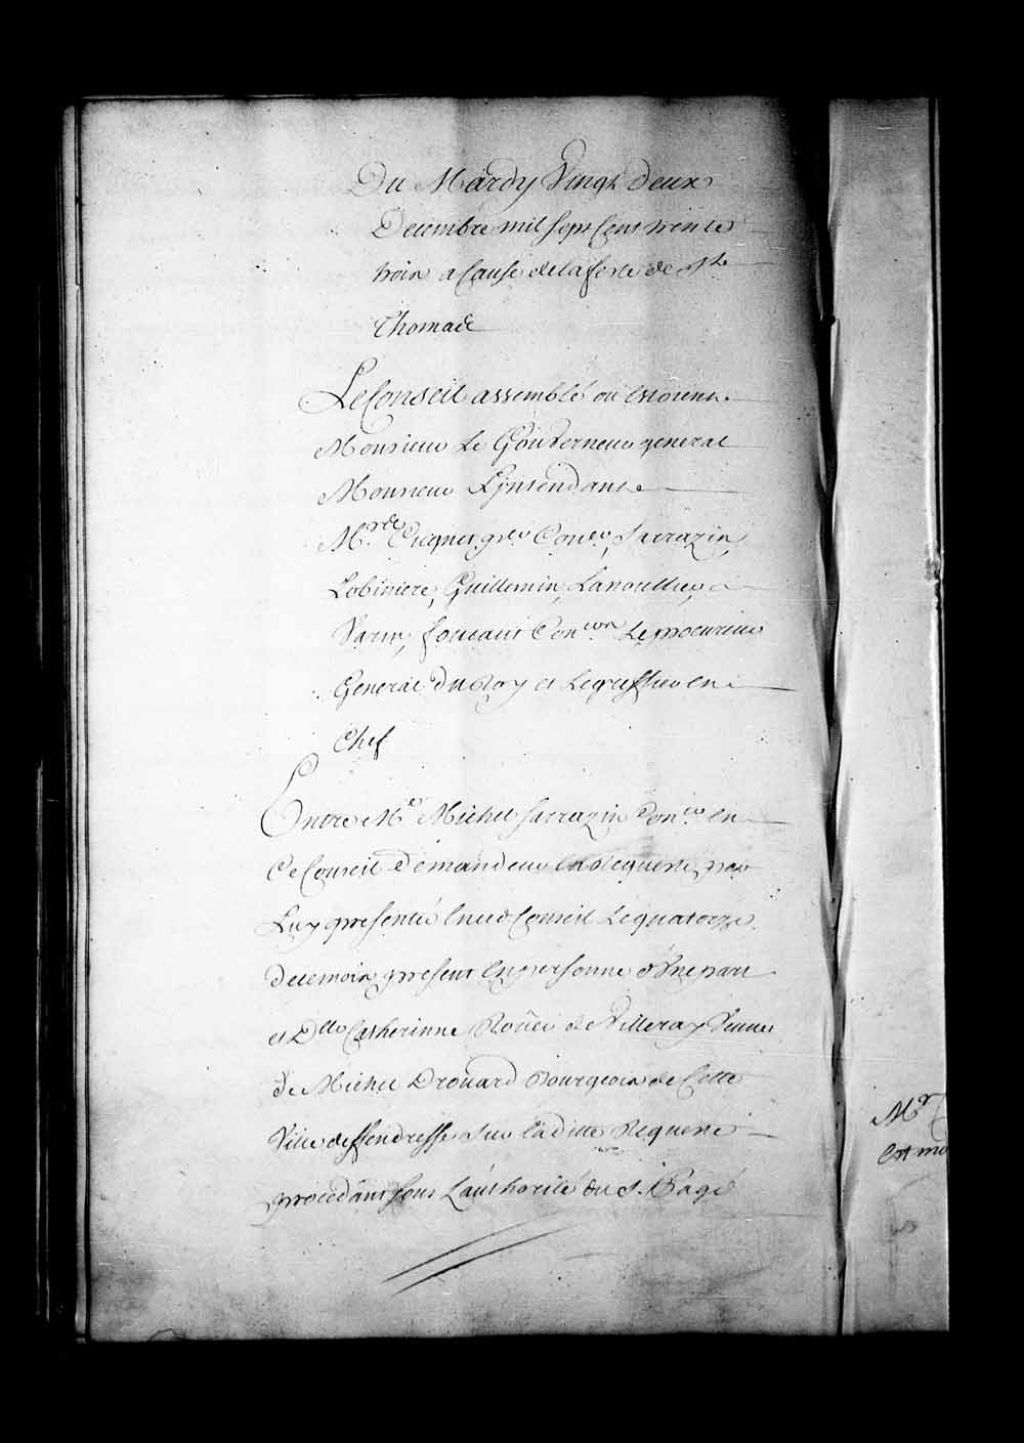 Du Mardy Vingt deux
Decembre mil sept Cent trente
trois a Cause de la feste de St
Thomade
Le Conseil assemblé ou estoient
Monsieur Le Gouverneur general
Monsieur L'jntendant
Mrs de Cregnet pr Coner, Sarrazin,
Lobiniere, Guillemin, Lanoullier,
Varin, foucaut Coners Le procureur
General du Roy et Le greffier en
Chef
Entre Me Michel Sarrazin Coner en
Ce Conseil Demandeur en Requeste par
Luy presenté en ced Conseil Le quatorze
de ce mois, present en personne d'Vne part
et Dlle Catherinne Roüer de Villeray Veuve
de Michel Drouard Bourgeois de Cette
Ville deffenderesse Sur la ditte Requeste
procedant sous L'authorité du S. Pagé
Mr
Est